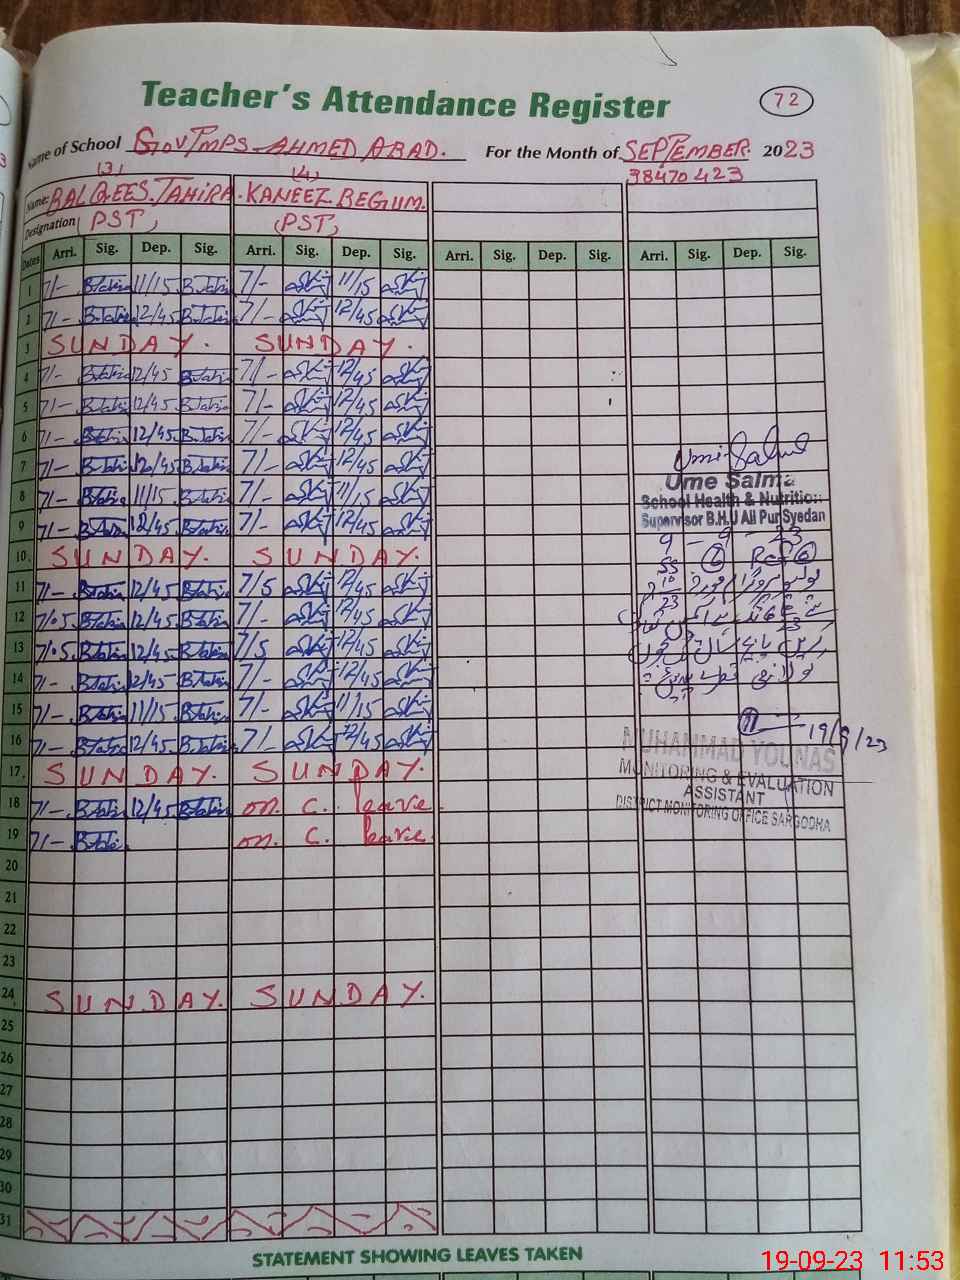 Teacher's Attendance Register 72
Name of School GOVT MPS AHMED ABAD. For the Month of SEPTEMBER 2023
(3) (4) 38470423
Name: BALQEES. TAHIRA. KANEEZ BEGUM.
Designation (PST) (PST)
Dates Arri. Sig. Dep. Sig. Arri. Sig. Dep. Sig. Arri. Sig. Dep. Sig. Arri. Sig. Dep. Sig.
1 7/- B.Tahira 11/15 B.Tahira 7/- 11/15
2 7/- B.Tahira 12/45 B.Tahira 7/- 12/45
3 SUNDAY. SUNDAY.
4 7/- B.Tahira 12/45 B.Tahira 7/- 12/45
5 7/- B.Tahira 12/45 B.Tahira 7/- 12/45
6 7/- B.Tahira 12/45 B.Tahira 7/- 12/45
7 7/- B.Tahira 12/45 B.Tahira 7/- 12/45
Umi Salma
8 7/- B.Tahira 11/15 B.Tahira 7/- 11/15
Ume Salma
School Health & Nutrition
Supervisor B.H.U Ali Pur Syedan
9 7/- B.Tahira 12/45 B.Tahira 7/- 12/45
9 - 9 - 23
10 SUNDAY. SUNDAY.
11 7/- B.Tahira 12/45 B.Tahira 7/5 12/45
12 7/05 B.Tahira 12/45 B.Tahira 7/- 12/45
13 7/05 B.Tahira 12/45 B.Tahira 7/5 12/45
14 7/- B.Tahira 12/45 B.Tahira 7/- 12/45
15 7/- B.Tahira 11/15 B.Tahira 7/- 11/15
16 7/- B.Tahira 12/45 B.Tahira 7/- 12/45
19/9/23
MUHAMMAD YOUNAS
17 SUNDAY. SUNDAY.
MONITORING & EVALUATION
ASSISTANT
DISTRICT MONITORING OFFICE SARGODHA
18 7/- B.Tahira 12/45 B.Tahira on. C. leave.
19 7/- B.Tahira on. C. leave.
20
21
22
23
24 SUNDAY. SUNDAY.
25
26
27
28
29
30
31
STATEMENT SHOWING LEAVES TAKEN
19-09-23 11:53